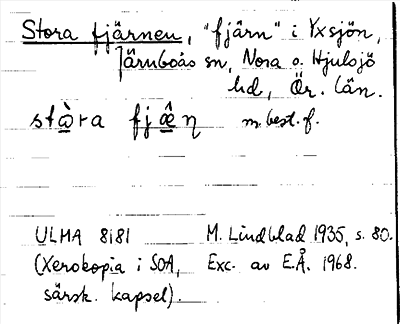 Stora fjärnen, "fjärn" i Yxsjön,
Järnboås sn, Nora o. Hjulsjö
hd, Ör. län.
stὰra fjæ̂ņ m. best. f.
ULMA 8181 M. Lindblad 1935, s. 80.
(Xerokopia i SOA, Exc. av E.Å. 1968.
särsk. kapsel).